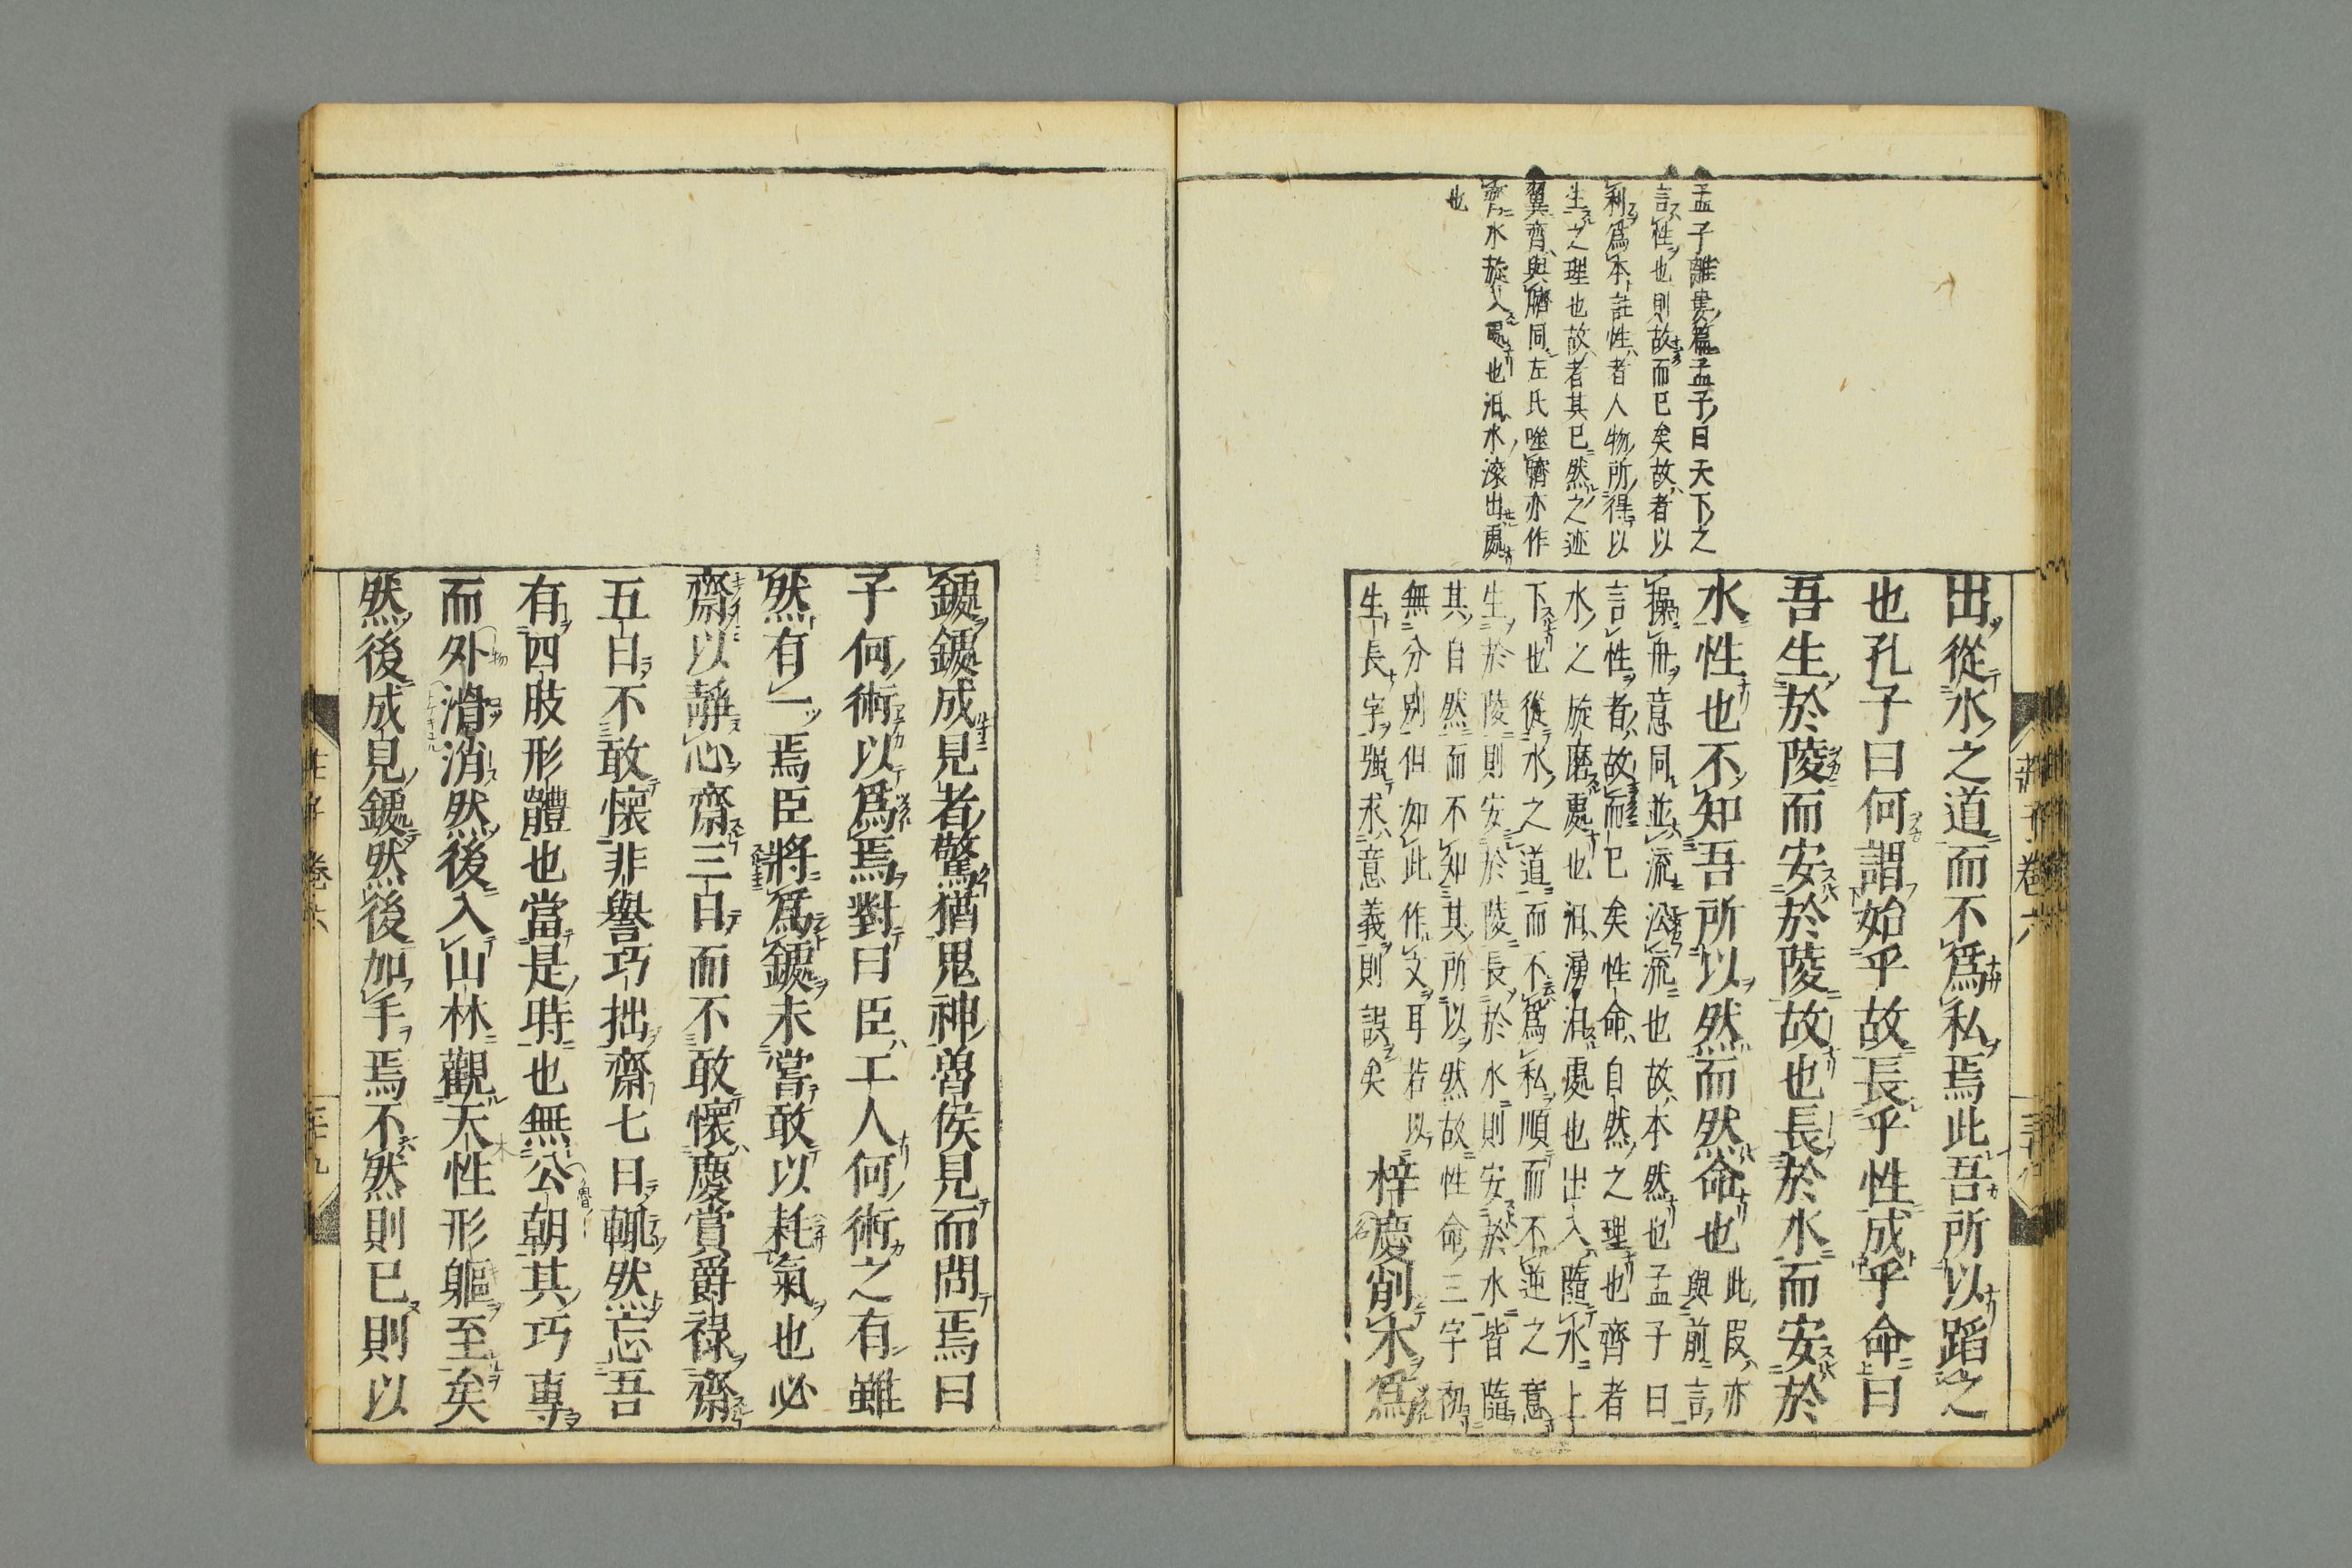 孟子離婁篇孟子曰天下之
言性也則故而已矣故者以
利爲本註性者人物所得以
生之理也故者其已然之迹
翼齊與臍同左氏噬臍亦作
齊水旋入處也汨水滾出處
也
出從水之道而不爲私焉此吾所以蹈之
也孔子曰何謂始乎故長乎性成乎命曰
吾生於陵而安於陵故也長於水而安於
水性也不知吾所以然而然命也
此段亦
與前言
操舟意同並流沿流也故本然也孟子曰
言性者故而已矣性命自然之理也齊者
水之旋磨處也汨湧汨處也出入隨水上
下也從水之道而不爲私順而不逆之意
生於陵則安於陵長於水則安於水皆隨
其自然而不知其所以然故性命三字初
無分別但如此作文耳若以
生長字强求意義則誤矣
梓慶削木爲
鐻鐻成見者驚猶鬼神魯侯見而問焉曰
子何術以爲焉對曰臣工人何術之有雖
然有一焉臣將爲鐻未嘗敢以耗氣也必
齋以靜心齋三日而不敢懷慶賞爵祿齋
五日不敢懷非譽巧拙齋七日輒然忘吾
有四肢形體也當是時也無公朝其巧專
而外滑消然後入山林觀天性形軀至矣
然後成見鐻然後加手焉不然則已則以
莊子卷六